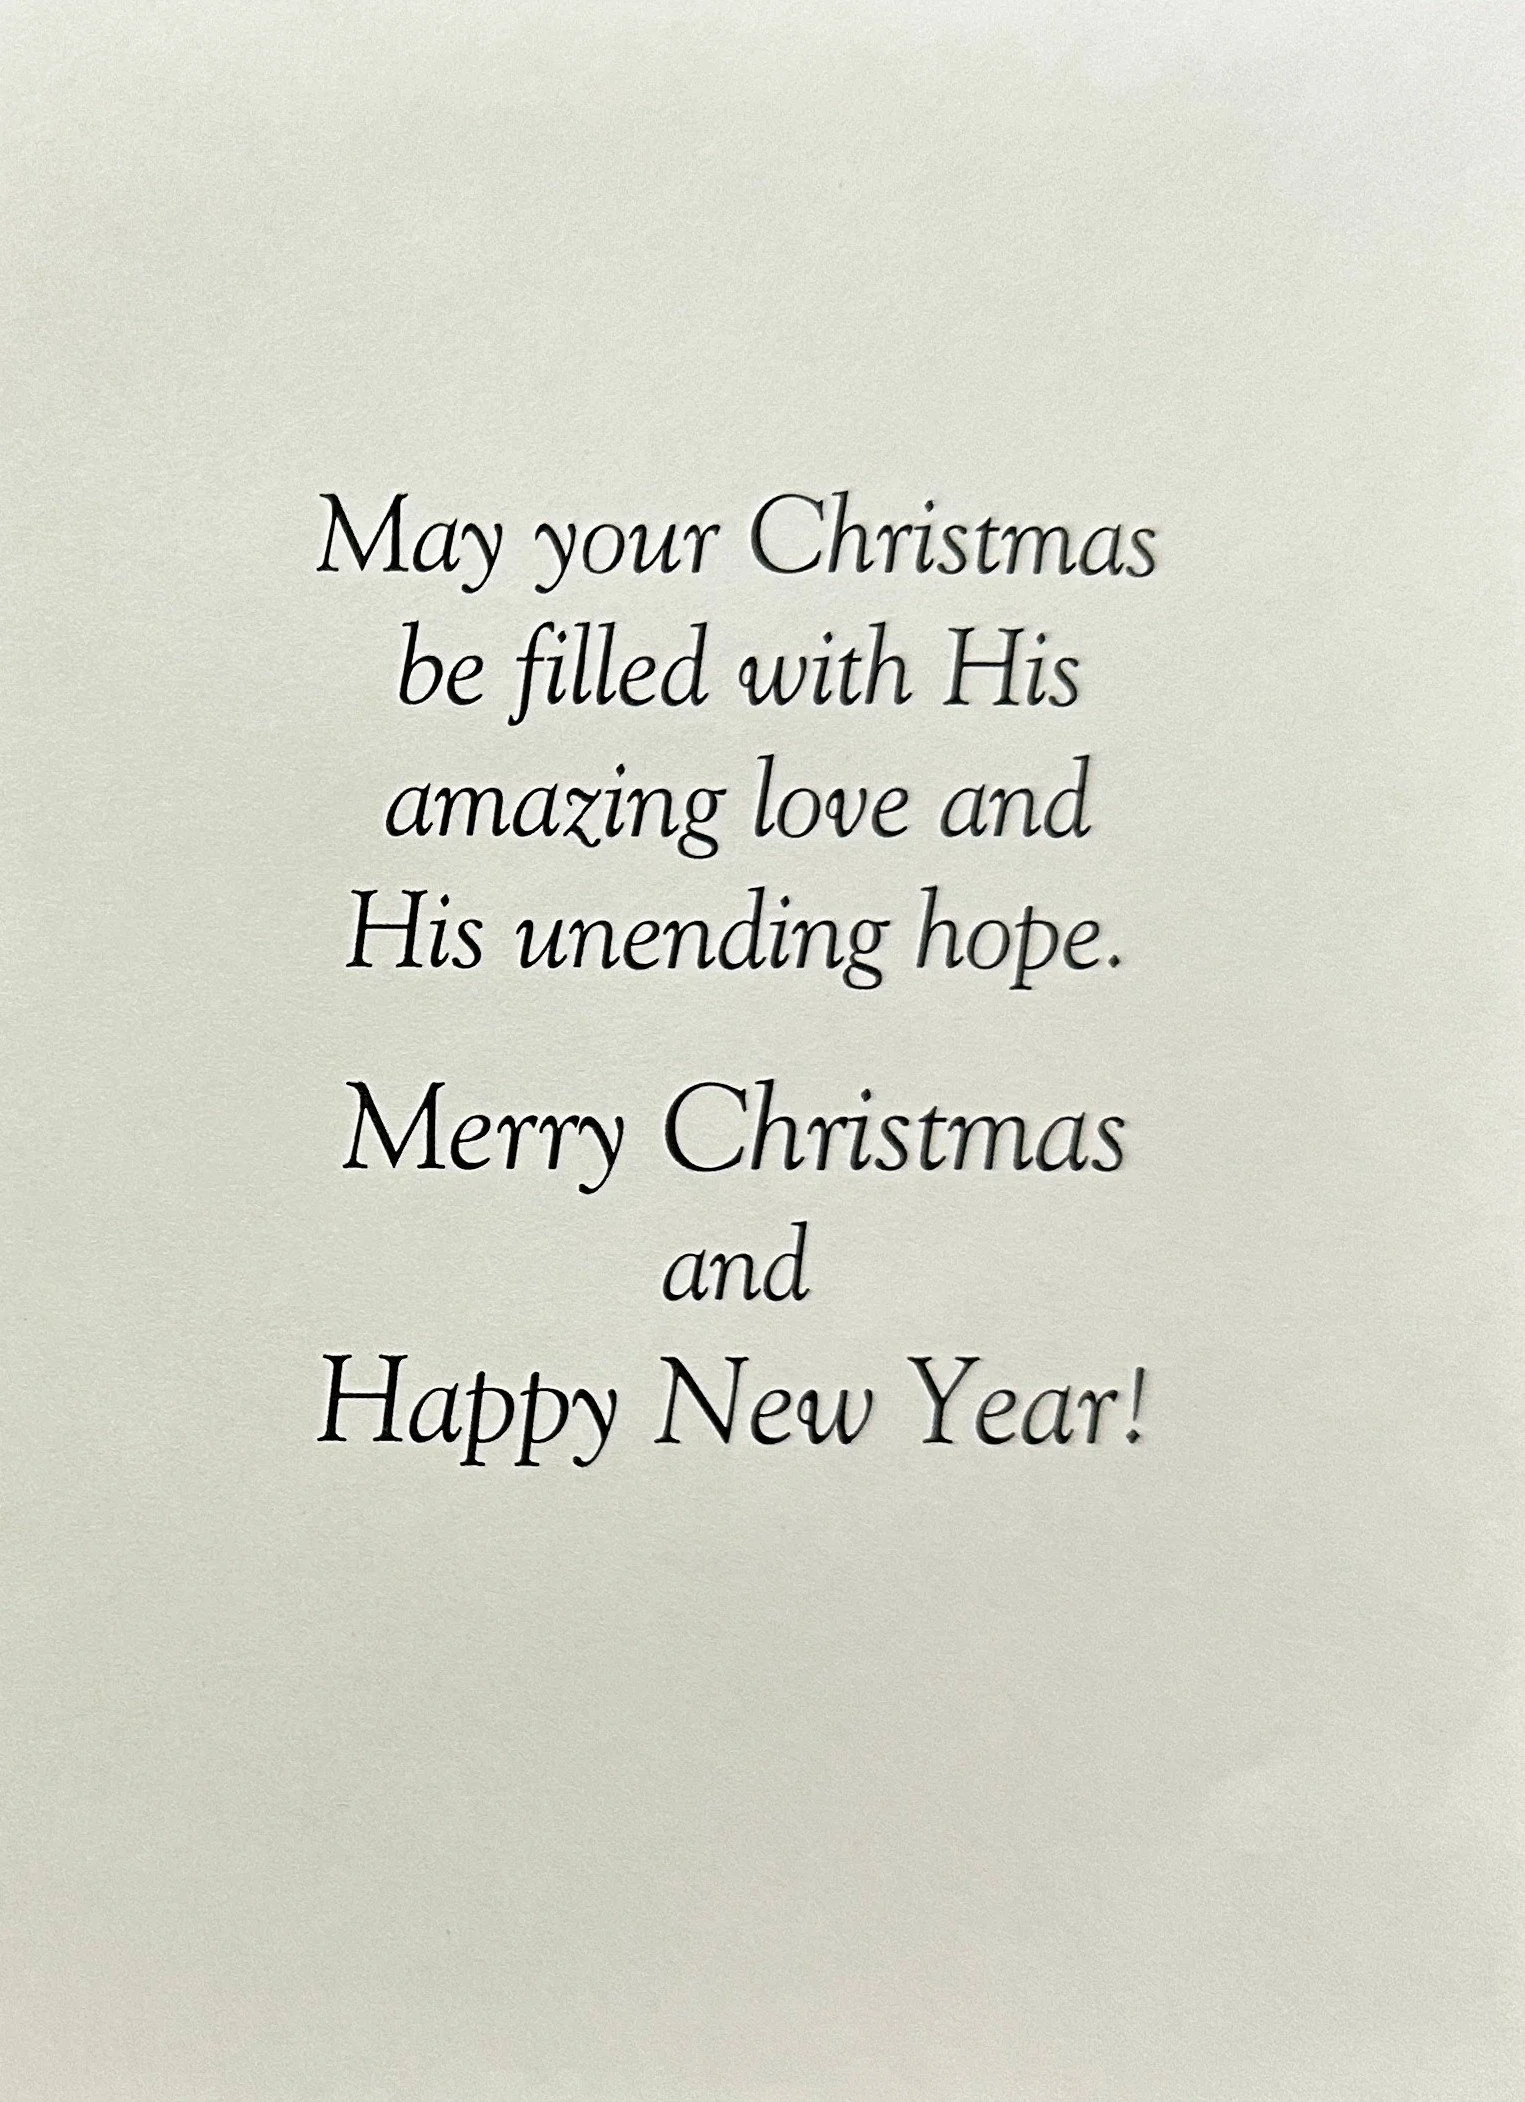 May your Christmas
be filled with His
amazing love and
His unending hope.
Merry Christmas
and
Happy New Year!